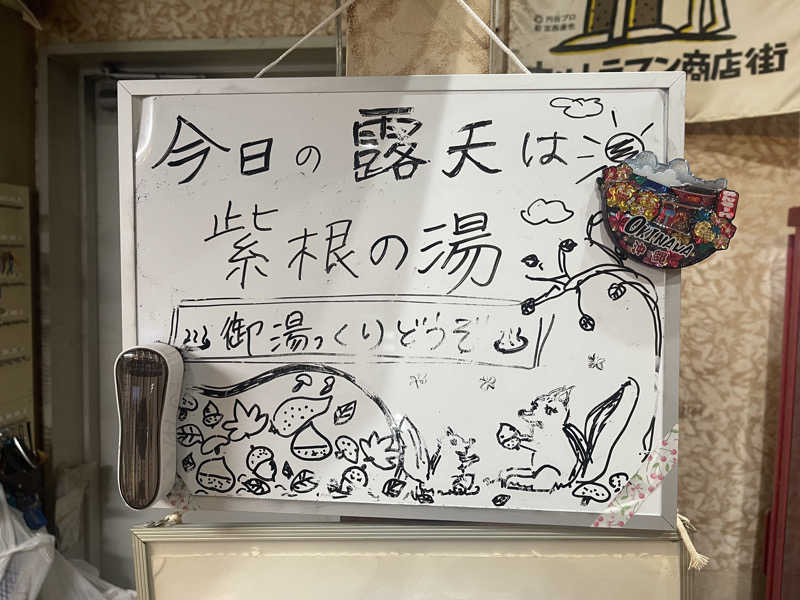 © 円谷プロ
ウルトラマン商店街
今日の露天は
紫根の湯
御湯っくりどうぞ
OKINAWA
沖縄